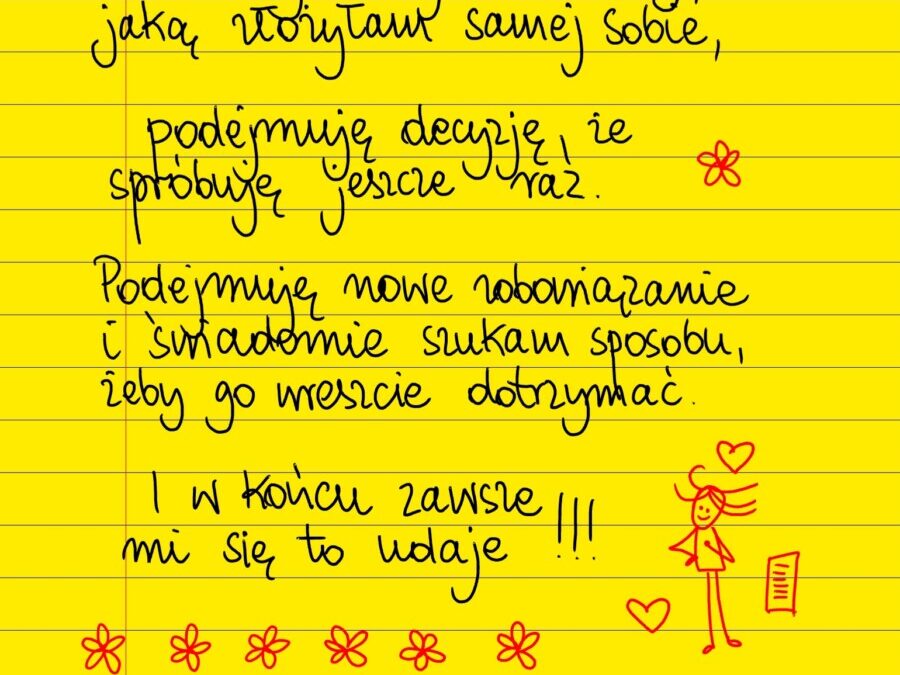 jaką złożyłam samej sobie,
podejmuję decyzję, że
spróbuję jeszcze raz.
Podejmuję nowe zobowiązanie
i świadomie szukam sposobu,
żeby go wreszcie dotrzymać.
I w końcu zawsze
mi się to udaje !!!